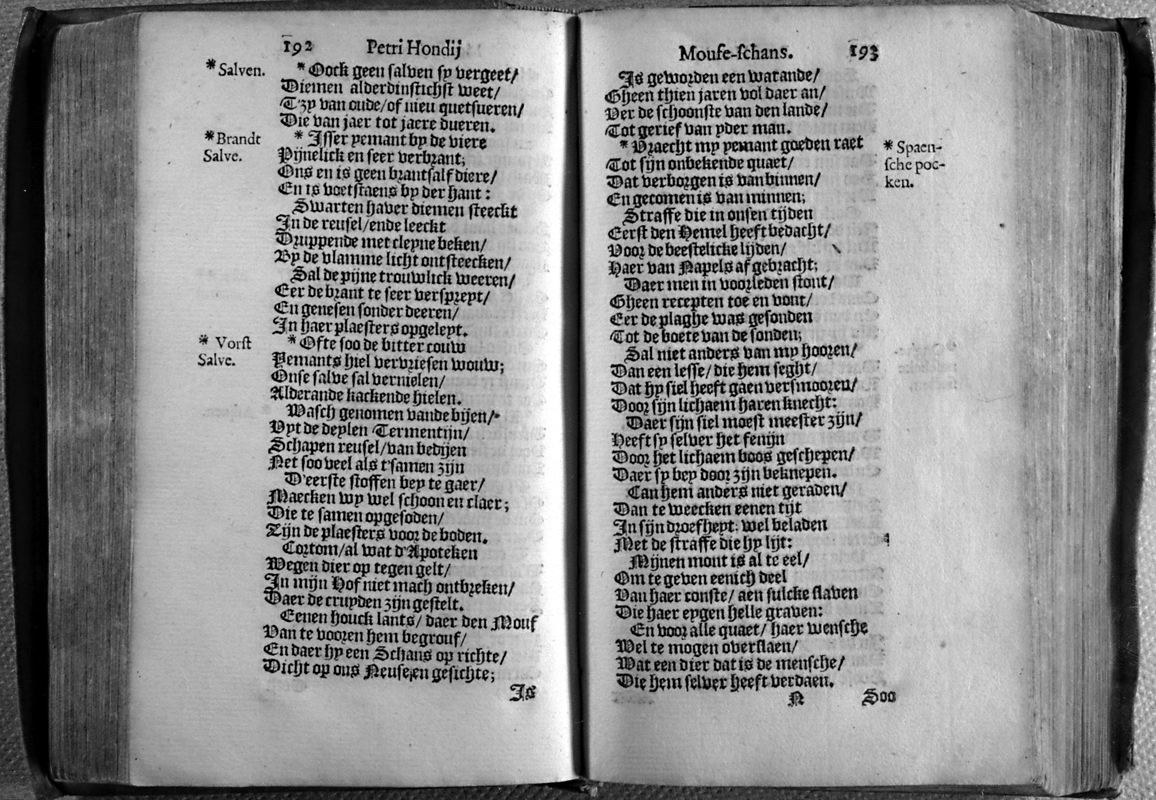 192 Petri Hondij
* Salven.
* Oock geen salven sy vergeet/
Diemen alderdinstichst weet/
T'zy van oude/of nieu quetsueren/
Die van jaer tot jaere dueren.
* Brandt
Salve.
* Isser yemant by de viere
Pijnelick en seer verbrant;
Ons en is geen brantsalf diere/
En is voetstaens by der hant:
Swarten haver diemen steeckt
In de reusel/ende leeckt
Druppende met cleyne beken/
By de vlamme licht ontsteecken/
Sal de pijne trouwlick weeren/
Eer de brant te seer verspreyt/
En genesen sonder deeren/
In haer plaesters opgeleyt.
* Vorst
Salve.
* Ofte soo de bitter couw
Yemants hiel vervriesen wouw;
Onse salve sal vernielen/
Alderande kackende hielen.
Wasch genomen vande bijen/
Uyt de deylen Termentijn/
Schapen reusel/van bedijen
Net soo veel als t'samen zijn
D'eerste stoffen bey te gaer/
Maecken wy wel schoon en claer;
Die te samen opgesoden/
Zijn de plaesters voor de boden.
Cortom/al wat d'Apoteken
Wegen dier op tegen gelt/
In mijn Hof niet mach ontbreken/
Daer de cruyden zijn gestelt.
Eenen houck lants/ daer den Mouf
Van te vooren hem begrouf/
En daer hy een Schans op richte/
Dicht op ons Neusen en gesichte;
Is
Mouse-schans. 193
Is geworden een warande/
Gheen thien jaren vol daer an/
Ver de schoonste van den lande/
Tot gerief van yder man.
* Spaen-
sche poc-
ken.
* Vraecht my yemant goeden raet
Tot sijn onbekende quaet/
Dat verborgen is van binnen/
En gecomen is van minnen;
Straffe die in onsen tijden
Eerst den Hemel heeft bedacht/
Voor de beestelicke lijden/
Haer van Napels af gebracht;
Daer men in voorleden stont/
Gheen recepten toe en vont/
Eer de plaghe was gesonden
Tot de boete van de sonden;
Sal niet anders van my hooren/
Dan een lesse/ die hem seght/
Dat hy siel heeft gaen versmooren/
Door sijn lichaem haren knecht:
Daer sijn siel moest meester zijn/
Heeft sy selver het fenijn
Door het lichaem boos geschepen/
Daer sy bey door zijn beknepen.
Can hem anders niet geraden/
Dan te weecken eenen tijt
In sijn droefheyt: wel beladen
Met de straffe die hy lijt:
Mijnen mont is al te eel/
Om te geven eenich deel
Van haer conste/ aen sulcke slaven
Die haer eygen helle graven:
En voor alle quaet/ haer wensche
Wel te mogen overslaen/
Wat een dier dat is de mensche/
Die hem selver heeft verdaen.
N Soo